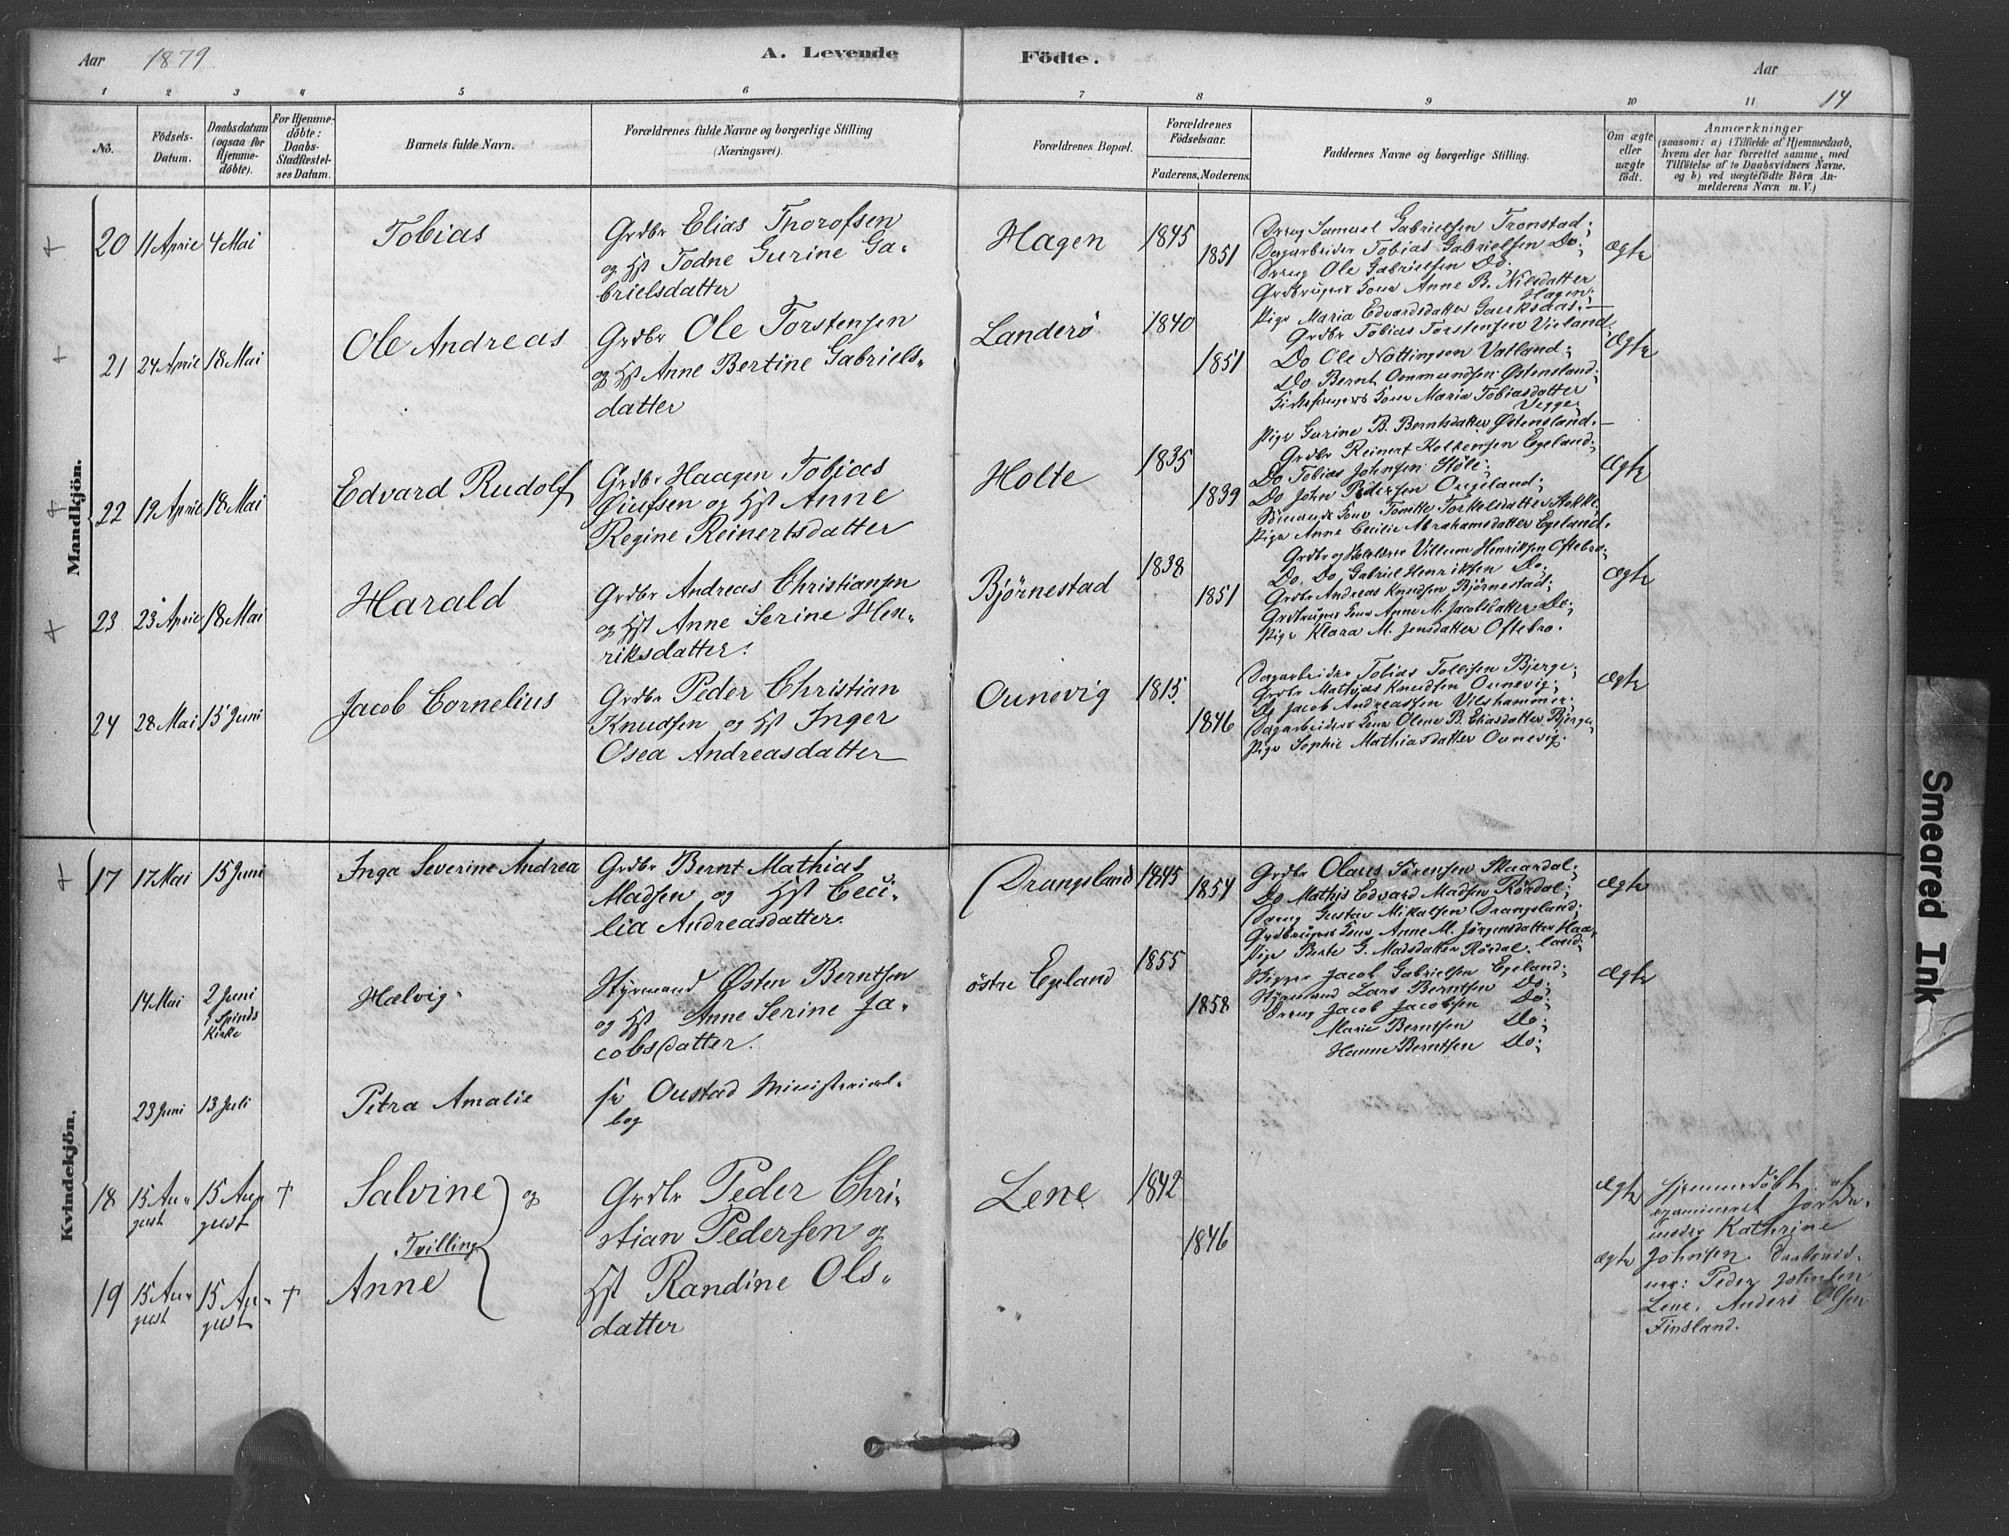 Aar 1879 A. Levende Födte. Aar
1 2 3 4 5 6 7 8 9 10 11 14
No.
Födsels-
Datum.
Daabsdatum
(ogsaa for
Hjemme-
döbte).
For Hjemme-
döbte:
Daabs-
Stadfæstel-
ses Datum.
Barnets fulde Navn.
Forældrenes fulde Navne og borgerlige Stilling
(Næringsvei).
Forældrenes Bopæl.
Forældrenes
Födselsaar.
Faderens. Moderens.
Faddernes Navne og borgerlige Stilling.
Om ægte
eller
uægte
födt.
Anmærkninger
(saasom: a) i Tilfælde af Hjemmedaab,
hvem der har forrettet samme, med
Tilföielse af to Daabsvidners Navne,
og b) ved uægtefödte Börn An-
melderens Navn m. V.)
Mandkjön.
20 11 April 4 Mai
Tobias
Grdbr Elias Thorofsen
og Hst Todne Gurine Ga-
brielsdatter
Hagen
1845
1851
Dreng Samuel Gabrielsen Tronstad;
Dagarbeider Tobias Gabrielsen Do;
Dreng Ole Gabrielsen Do;
Grdbrugers Kone Anne B. Nilsdatter
Hagen;
Pige Maria Edvardsdatter
ægte
21 24 April 18 Mai
Ole Andreas
Grdbr Ole Torstensen
og Hst Anne Bertine Gabriels-
datter
Landerö
1840
1851
Grdbr Tobias Torstensen
Do Ole Nottingson Vatland;
Do Bernt Ommundsen Østensland;
Kone Maria Tobiasdatter
Vegge;
Pige Gurine B. Berntsdatter Østensland.
ægte
22 19 April 18 Mai
Edvard Rudolf
Grdbr Haagen Tobias
og Hst Anne
Regine Reinertsdatter
Holte
1835
1839
Grdbr Reinert Egeland;
Do Tobias Johnsen Støle;
Do John Pedersen
Kone Tomtte Torkelsdatter
Pige Anne Cecilie Abrahamsdatter Egeland.
ægte
23 23 April 18 Mai
Harald
Grdbr Andreas Christiansen
og Hst Anne Serine Hen-
riksdatter.
Bjørnestad
1838
1851
Grdbr og Villum Henriksen Oftebro;
Do. Do. Gabriel Henriksen Do;
Grdbr Andreas Knudsen Bjørnestad;
Grdbrugers Kone Anne M. Jacobsdatter Do;
Pige Klara M. Jensdatter Oftebro.
ægte
24 28 Mai 15 Juni
Jacob Cornelius
Grdbr Peder Christian
Knudsen og Hst Inger
Osea Andreasdatter
Ounevig
1815
1846
Dagarbeider Tobias Tollisen Bjerge;
Grdbr Mathias Knudsen Ounevig;
Do Jacob Andreassen Vilshammer;
Dagarbeiders Kone Olene B. Eliasdatter Bjerge;
Pige Sophie Mathiasdatter Ounevig.
ægte
Kvindekjön.
17 17 Mai 15 Juni
Inga Severine Andrea
Grdbr Bernt Mathias
Madsen og Hst Ceci-
lia Andreasdatter
Drangsland
1845
1854
Grdbr Olaus Sørensen Skaardal;
Do Mathis Edvard Madsen Rördal;
Dreng Gustav Mikalsen Drangsland;
Grdbrugers Kone Anne M. Jørgensdatter Haa-
land;
Pige Berte G. Madsdatter Rördal.
ægte
14 Mai 2 Juni
i Spinds
Kirke
Hælvig
Styrmand Østen Berntsen
og Hst Anne Serine Ja-
cobsdatter.
østre Egeland
1855
1858
Skipper Jacob Gabrielsen Egeland;
Styrmand Lars Berntsen Do;
Dreng Jacob Jacobsen Do;
Marie Berntsen Do;
Hanne Berntsen Do;
ægte
23 Juni 13 Juli
Petra Amalie
se Oustad Ministerial-
bog
18 15 Au-
gust 15 Au-
gust †
Salvine og
Tvilling
Grdbr Peder Chri-
stian Pedersen og
Hst Randine Ols-
datter
Lene
1842
1846
ægte
19 15 Au-
gust 15 Au-
gust †
Anne
ægte
Hjemmedöbt af
examineret Jorde-
moder Kathrine
Johnsen. Daabsvid-
ner: Peder Johnsen
Lene, Anders Olsen
Finsland.
Smeared Ink